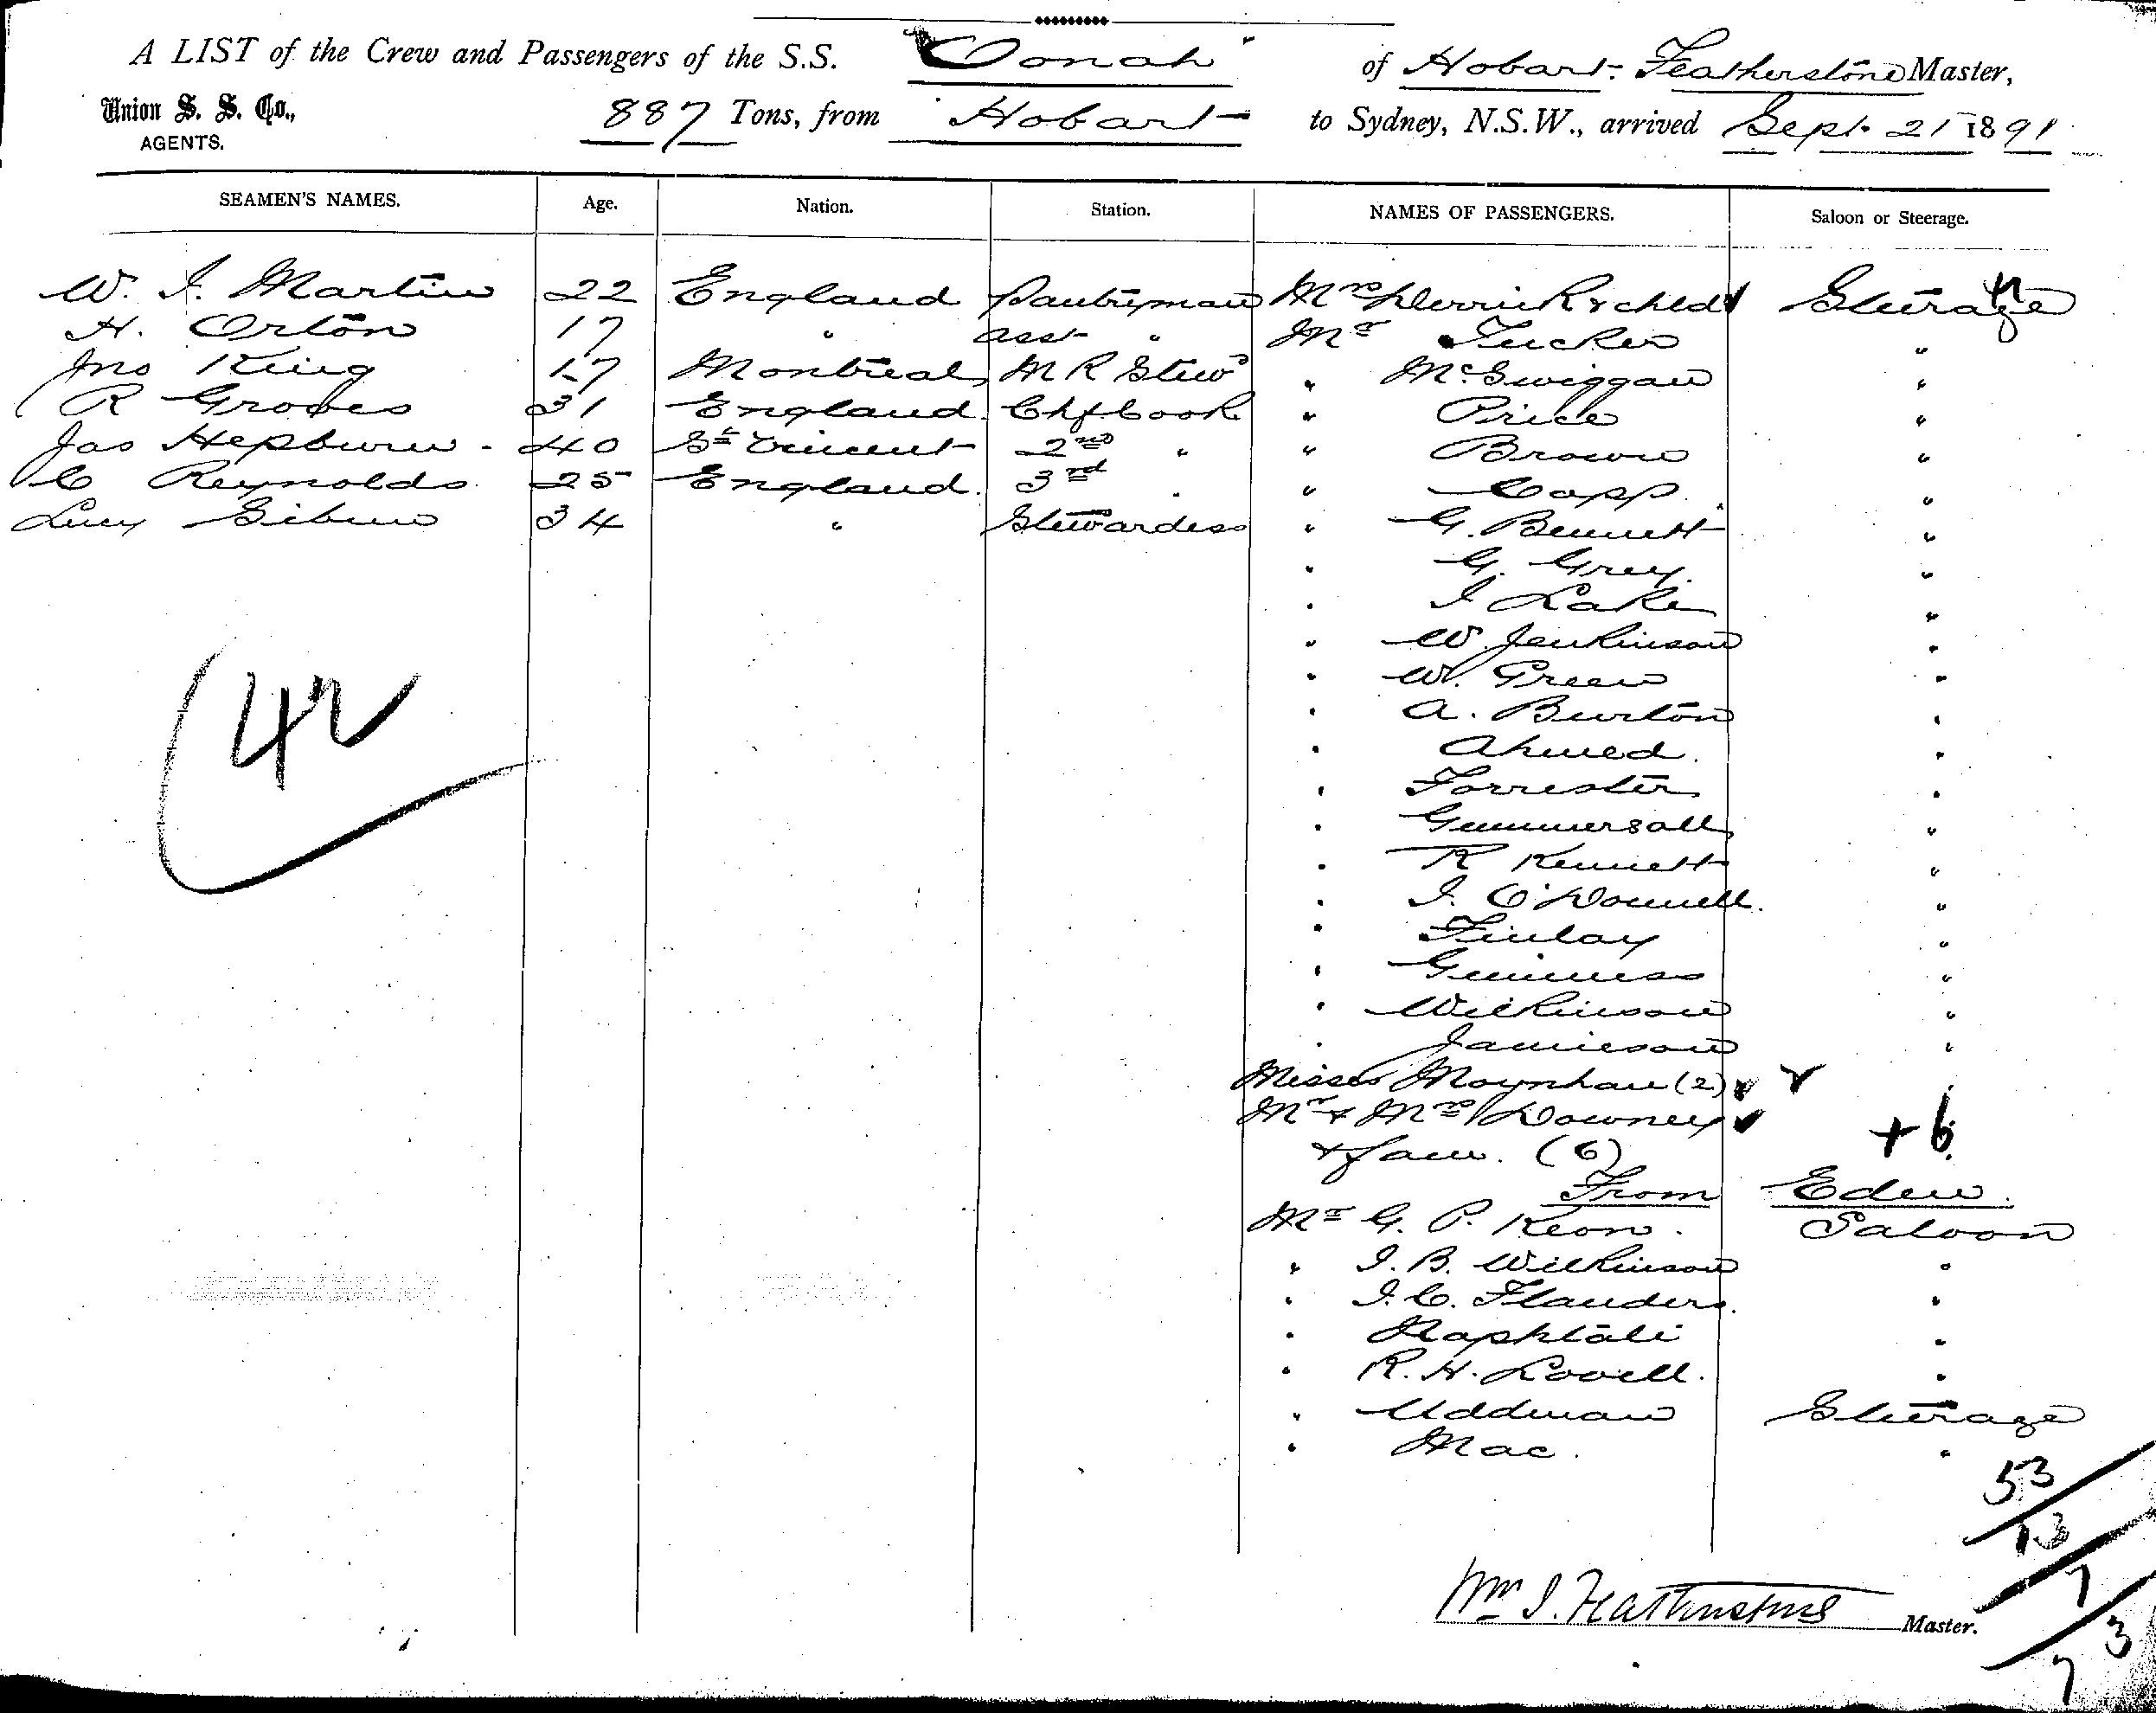 A LIST of the Crew and Passengers of the S.S. "Oonah" of Hobart. Featherstone Master,
Union S. S. Co., AGENTS. 887 Tons, from Hobart to Sydney, N.S.W., arrived Sept. 21 1891
SEAMEN'S NAMES. Age. Nation. Station. NAMES OF PASSENGERS. Saloon or Steerage.
W. J. Martin 22 England Pantryman Mrs & child Steerage
H. Orton 17 " asst " Mr Tucker "
Jno King 17 Montreal M R Stewd " McSwiggan "
R Groves 31 England. Chf Cook " Price "
Jas Hepburn - 40 St Vincent 2nd " " Brown "
C Reynolds 25 England. 3rd " " Capp. "
Lucy 34 " Stewardess " G. Bennett "
" G. Grey. "
" J Lake "
" W. Jenkinson "
" W. Green "
" A. Burton "
" Ahmed. "
" Forrester "
" Gummersall "
" R Kennett "
" J. O'Donnell. "
" Finlay "
" Guinness "
" Wilkinson "
" Jamieson "
Misses Moynhan (2)
Mr & Mrs Downey
& fam. (6) + 6
From Eden.
Mr G. P. Keon. Saloon
" J. B. Wilkinson "
" J. C. Flanders. "
" Naphtali "
" R. H. Lovell. "
" Uddman Steerage
" Mac. "
42
53
13
7
3
7
Wm J. Featherstone Master.